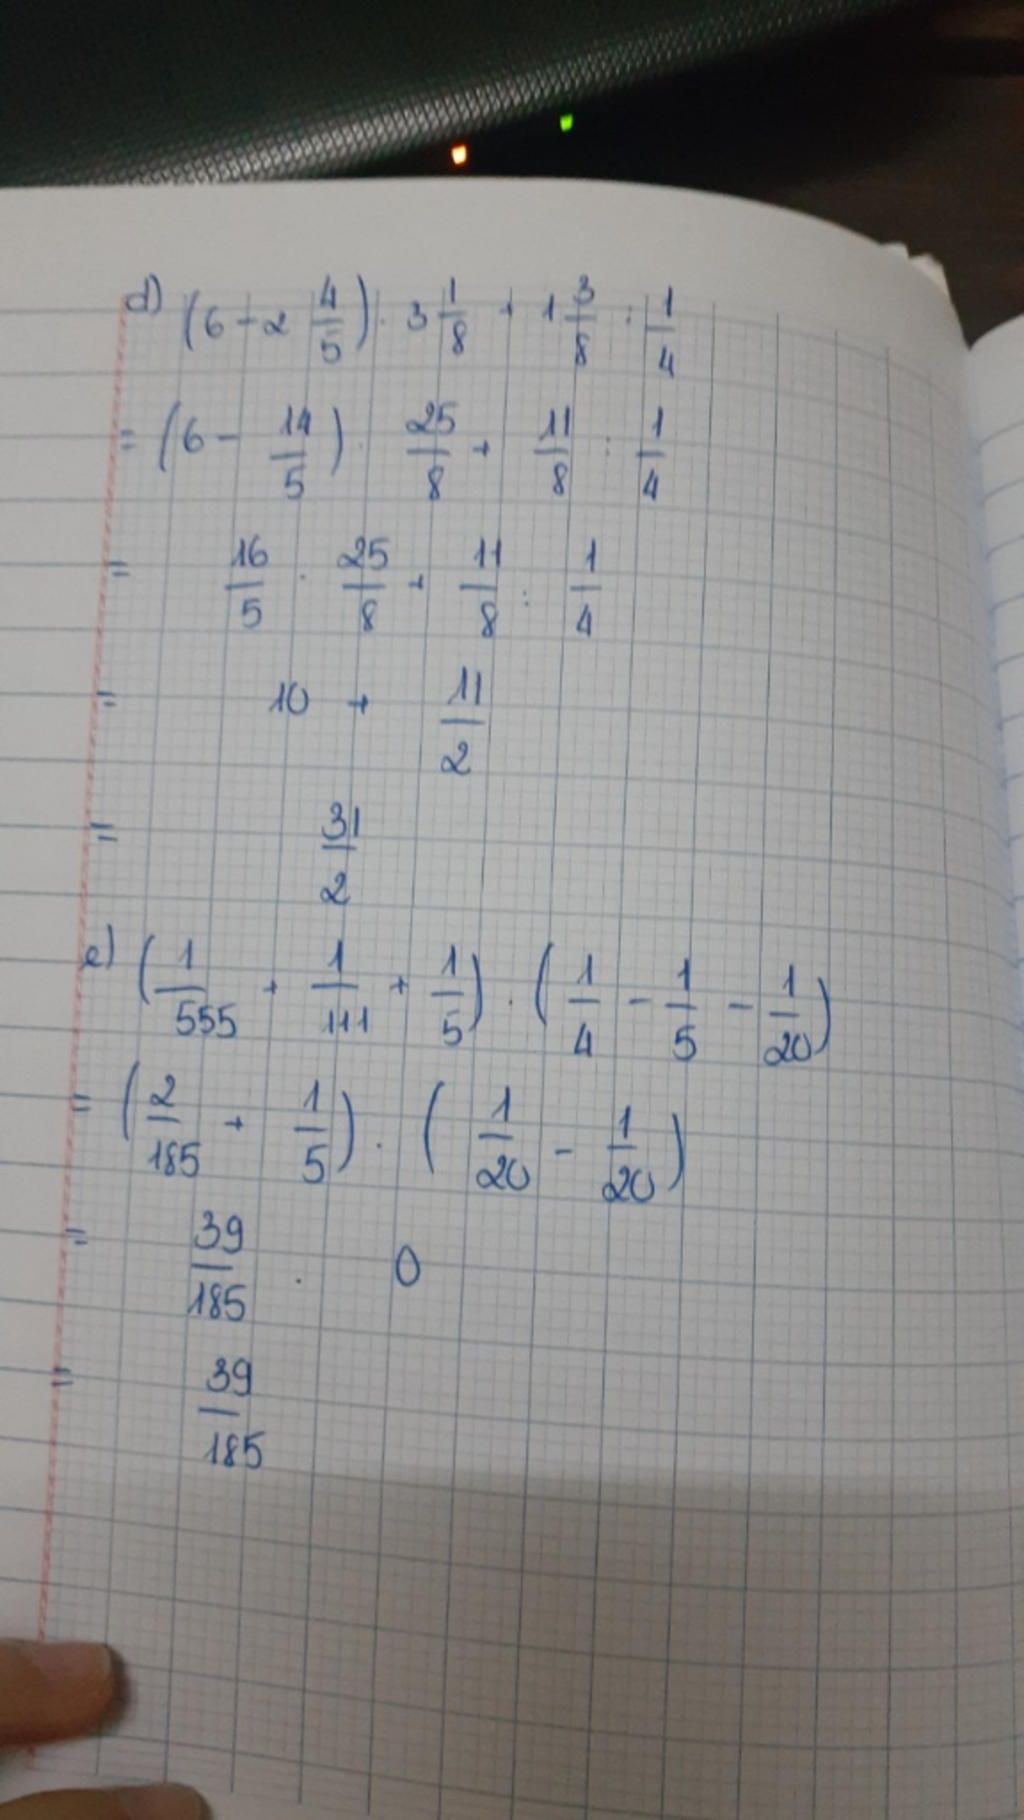 d) (6 - 2 4/5) . 3 1/8 + 1 3/8 : 1/4
= (6 - 14/5) . 25/8 + 11/8 : 1/4
= 16/5 . 25/8 + 11/8 : 1/4
= 10 + 11/2
= 31/2
e) (1/555 + 1/111 + 1/5) . (1/4 - 1/5 - 1/20)
= (2/185 + 1/5) . (1/20 - 1/20)
= 39/185 . 0
= 39/185